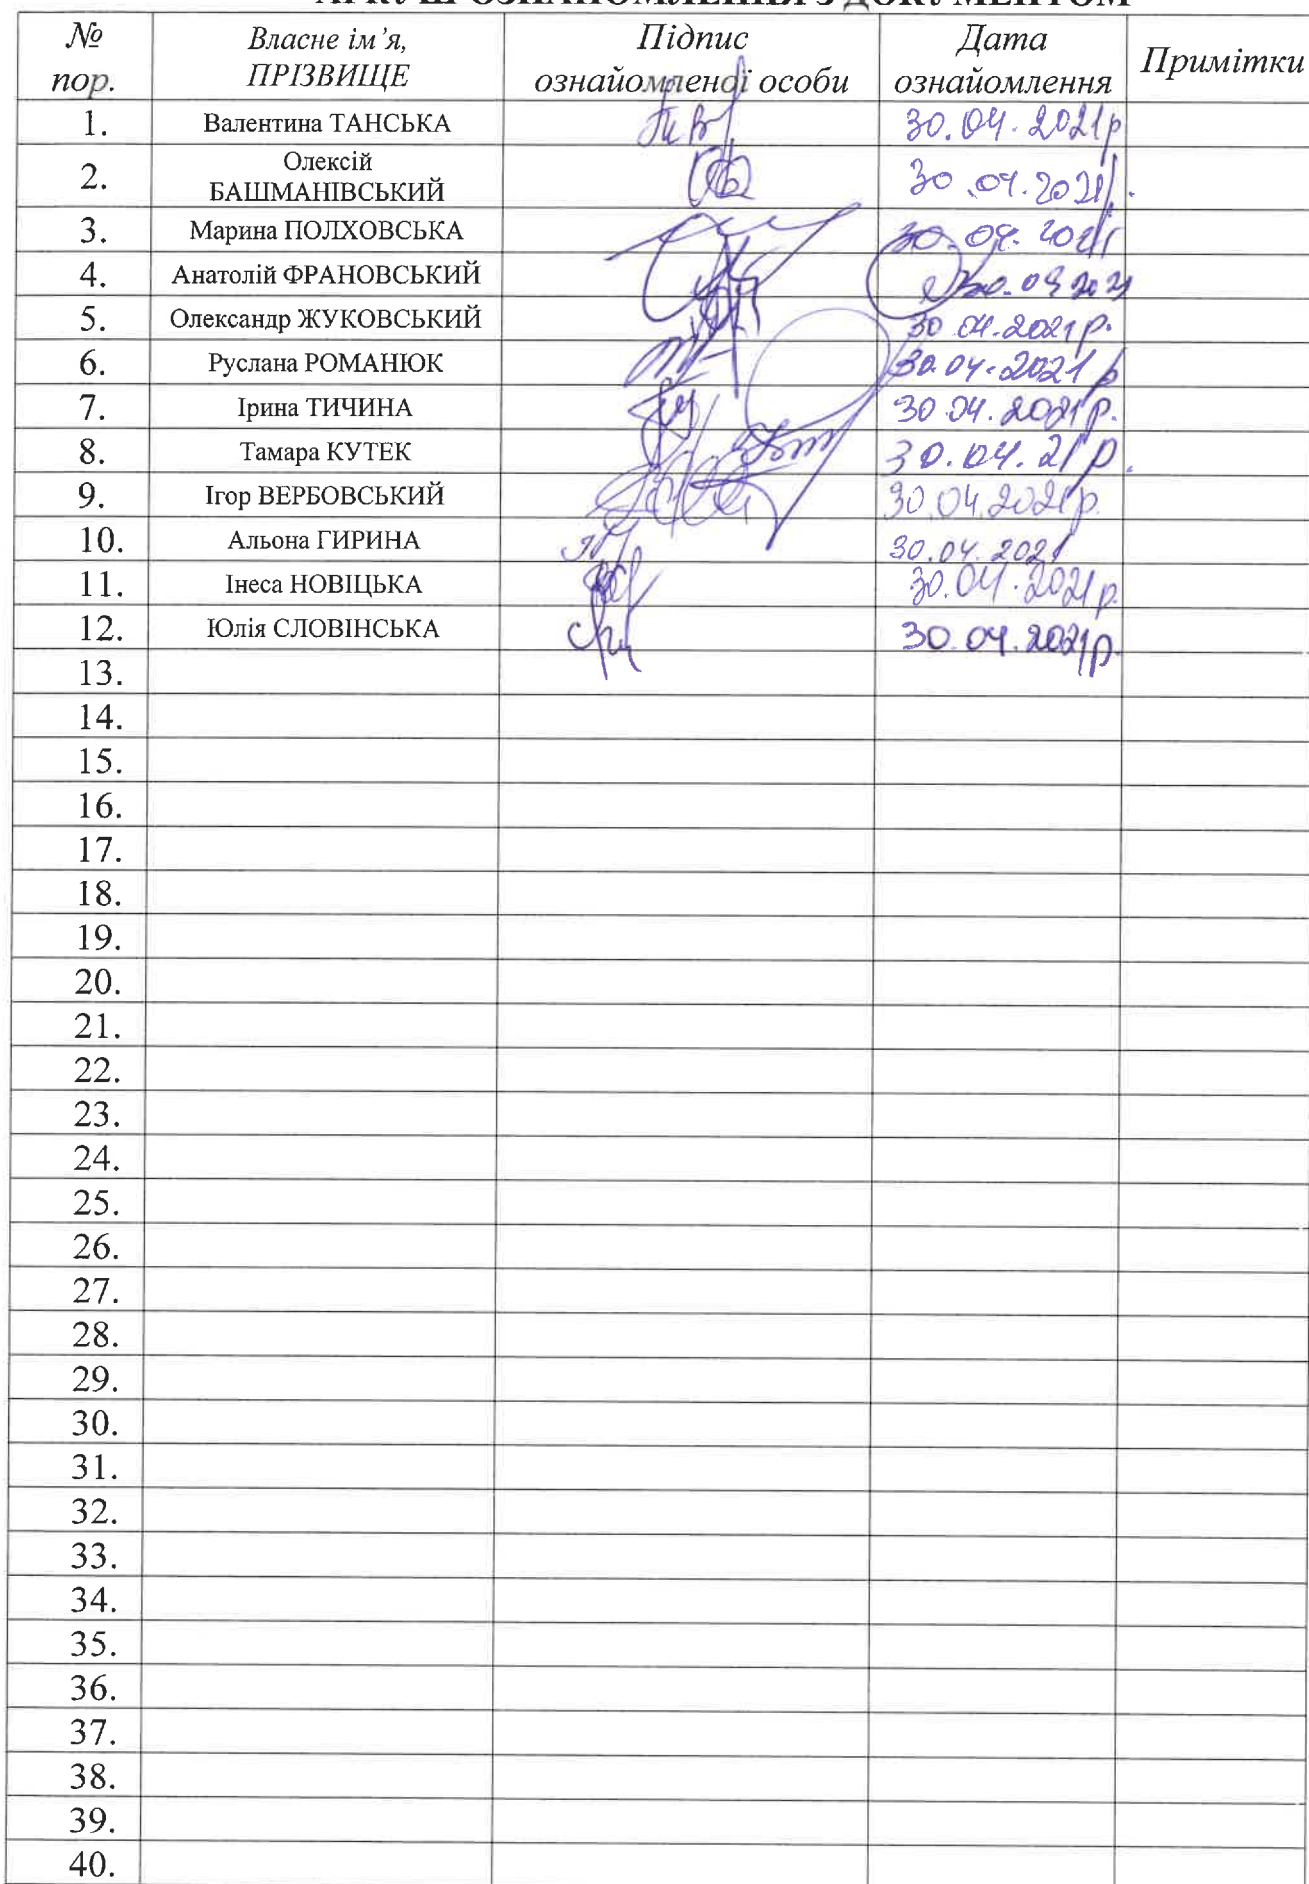 АРКУШ ОЗНАЙОМЛЕННЯ З ДОКУМЕНТОМ
№ пор. Власне ім’я, ПРІЗВИЩЕ Підпис ознайомленої особи Дата ознайомлення Примітки
1. Валентина ТАНСЬКА 30.04.2021р
2. Олексій БАШМАНІВСЬКИЙ 30.04.2021р.
3. Марина ПОЛХОВСЬКА 30.04.2021
4. Анатолій ФРАНОВСЬКИЙ 30.04 2021
5. Олександр ЖУКОВСЬКИЙ 30 04.2021р.
6. Руслана РОМАНЮК 30.04.2021 р
7. Ірина ТИЧИНА 30.04.2021р.
8. Тамара КУТЕК 30.04.21р.
9. Ігор ВЕРБОВСЬКИЙ 30.04.2021р.
10. Альона ГИРИНА 30.04.2021
11. Інеса НОВІЦЬКА 30.04.2021р.
12. Юлія СЛОВІНСЬКА 30.04.2021р.
13.
14.
15.
16.
17.
18.
19.
20.
21.
22.
23.
24.
25.
26.
27.
28.
29.
30.
31.
32.
33.
34.
35.
36.
37.
38.
39.
40.